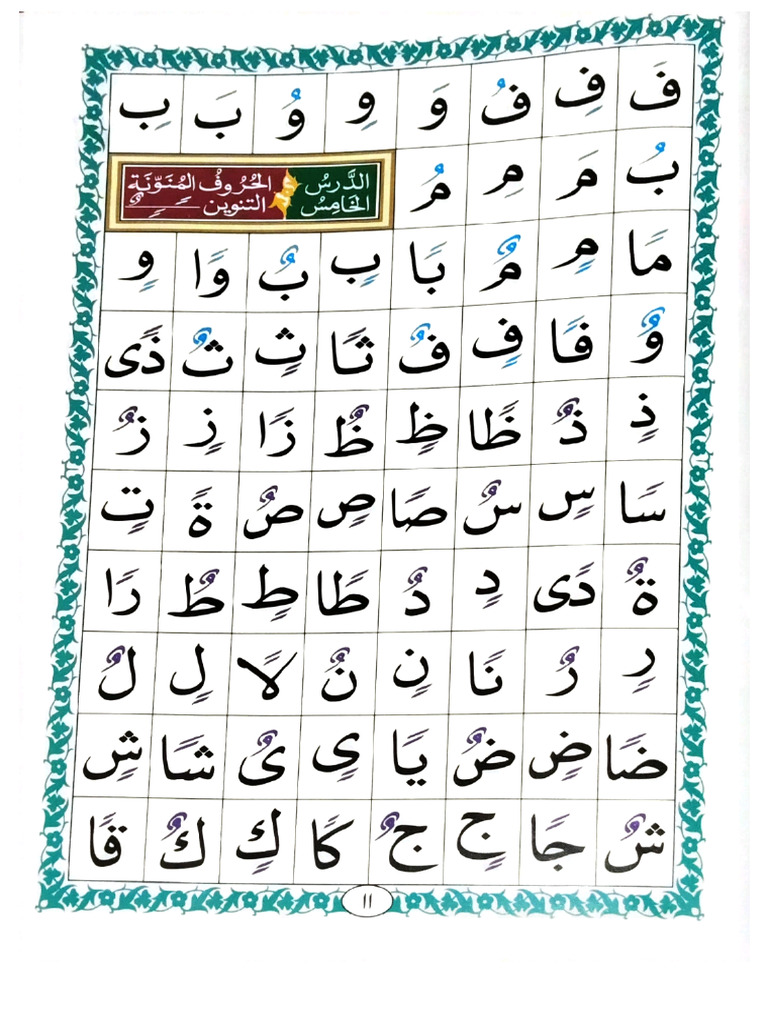 فَ فِ فُ وَ وِ وُ بَ بِ
بُ مَ مِ مُ
الدَّرسُ الخَامِسُ
الحُروفُ المُنَوَّنَة
التنوين ـًـ ـٍـ ـٌـ
مًا مٍ مٌ بًا بٍ بٌ وًا وٍ
وٌ فًا فٍ فٌ ثًا ثٍ ثٌ ذًى
ذٍ ذٌ ظًا ظٍ ظٌ زًا زٍ زٌ
سًا سٍ سٌ صًا صٍ صٌ ةً تٍ
ةٌ دًى دٍ دٌ طًا طٍ طٌ رًا
رٍ رٌ نًا نٍ نٌ لًا لٍ لٌ
ضًا ضٍ ضٌ يًا ىٍ ىٌ شًا شٍ
شٌ جًا جٍ جٌ كًا كٍ كٌ قًا
١١